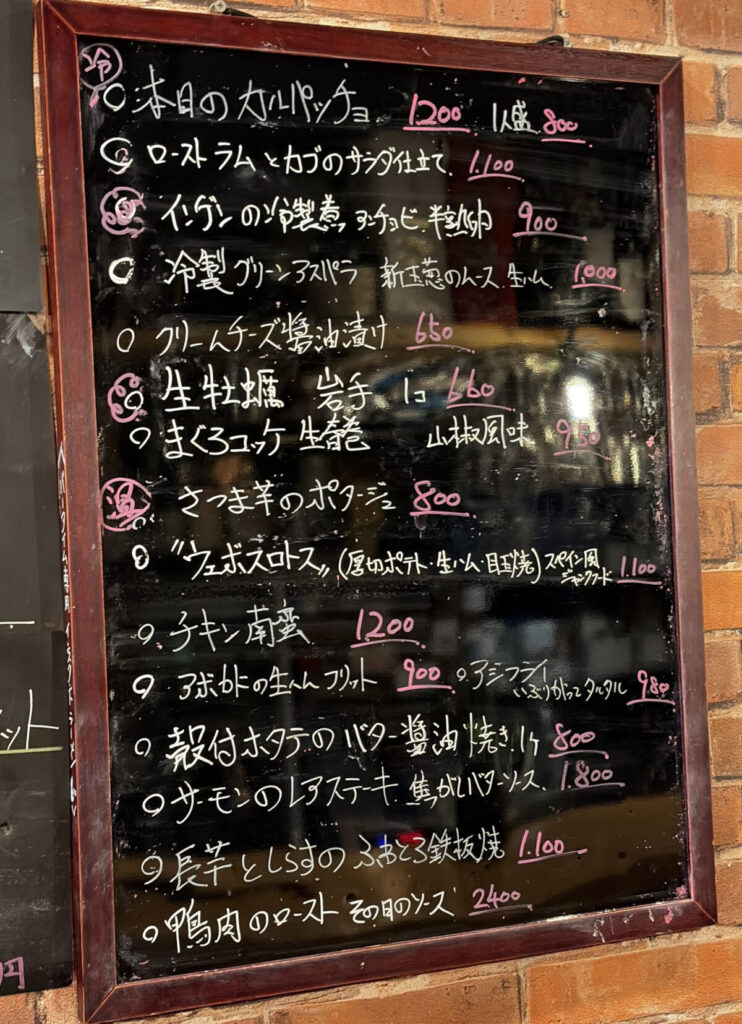 冷
本日のカルパッチョ 1200 1人盛 800
ローストラムとカブのサラダ仕立て 1.100
インゲンの冷製煮 アンチョビ 半熟卵 900
冷製グリーンアスパラ 新玉葱のムース 生ハム 1.000
クリームチーズ醬油漬け 650
生牡蠣 岩手 1コ 660
まぐろユッケ 生春巻 山椒風味 950
温
さつま芋のポタージュ 800
"ウェボスロトス" (厚切ポテト・生ハム・目玉焼) スペイン風ジャンクフード 1.100
チキン南蛮 1200
アボカドの生ハムフリット 900 アジフライ いぶりがっこタルタル 980
殻付ホタテのバター醬油焼き 1ケ 800
サーモンのレアステーキ 焦がしバターソース 1.800
長芋としらすのふわとろ鉄板焼 1.100
鴨肉のロースト その日のソース 2400
ット
円